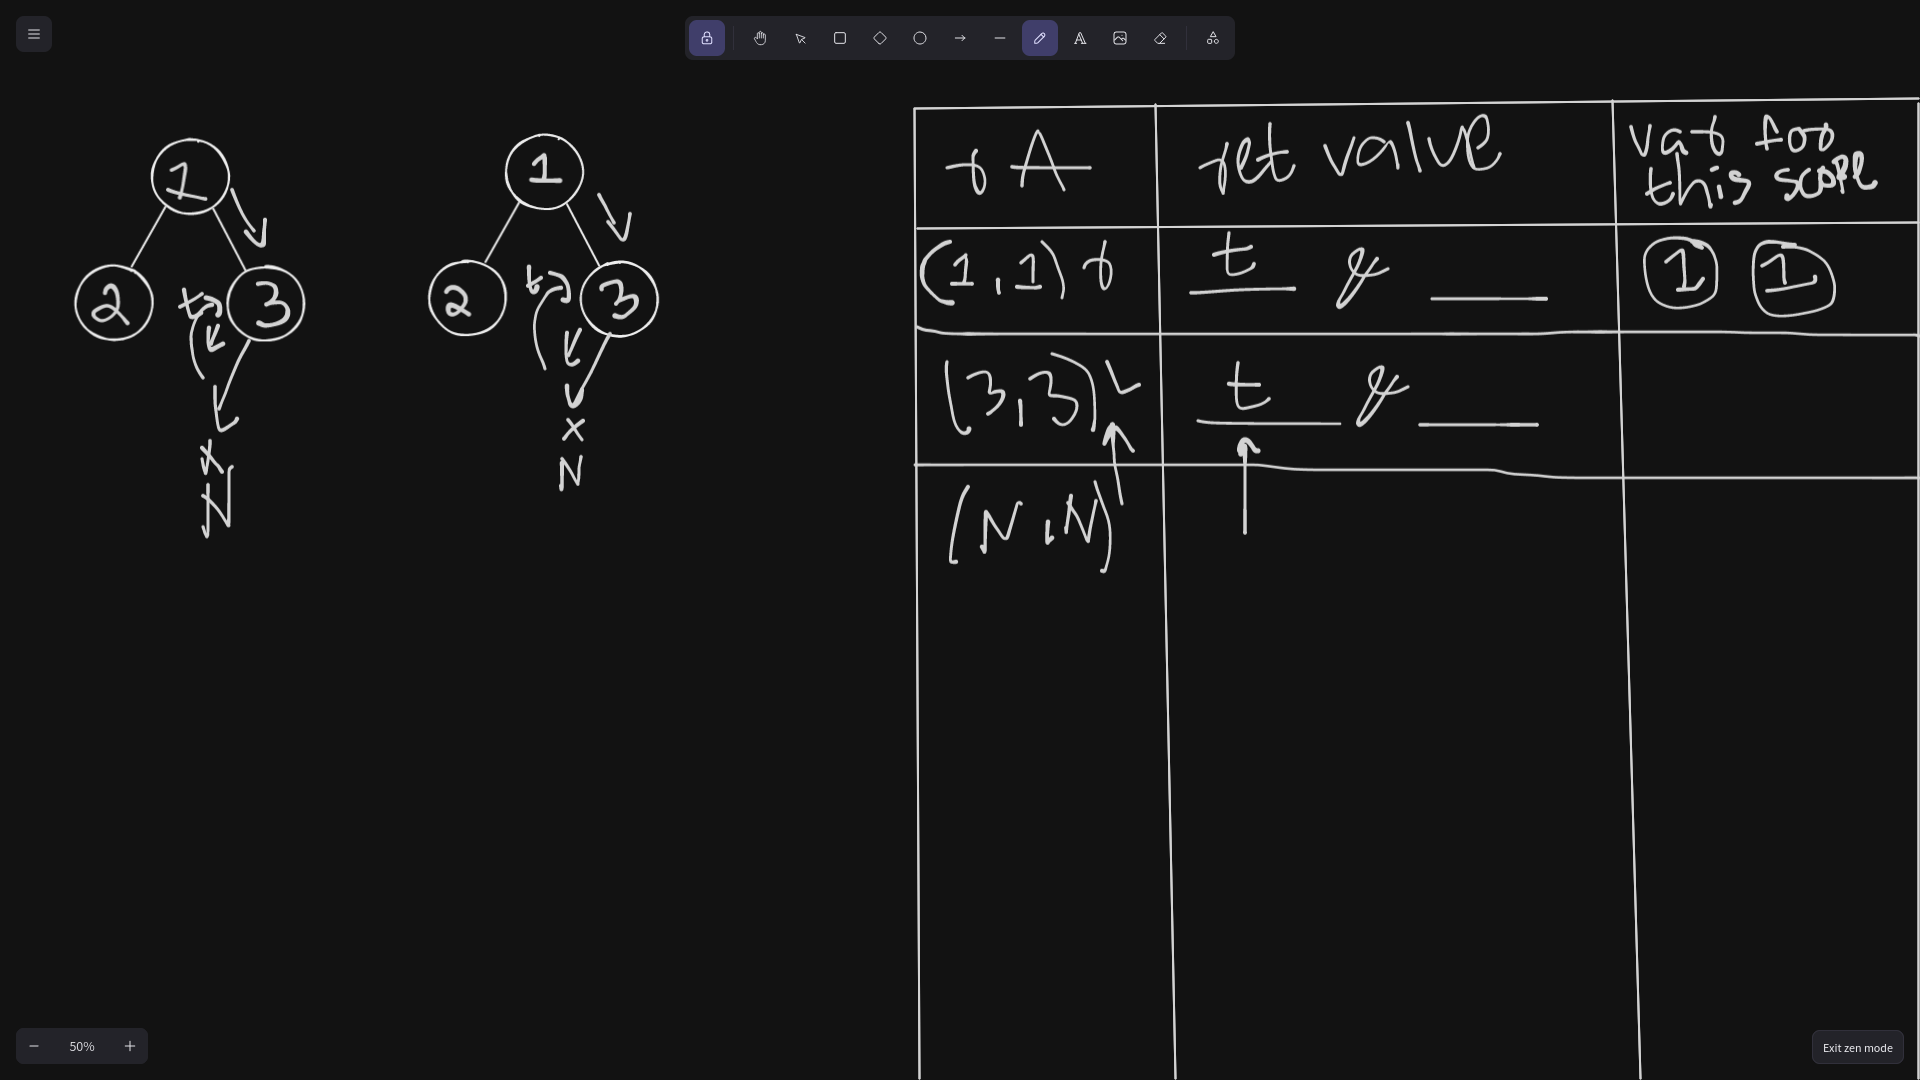 1
1
2
t
3
2
t
3
x
N
x
N
r A
ret value
var for
this scope
(1,1) r
t & ___
1 1
(3,3) L
t & ___
(N,N)
50%
Exit zen mode